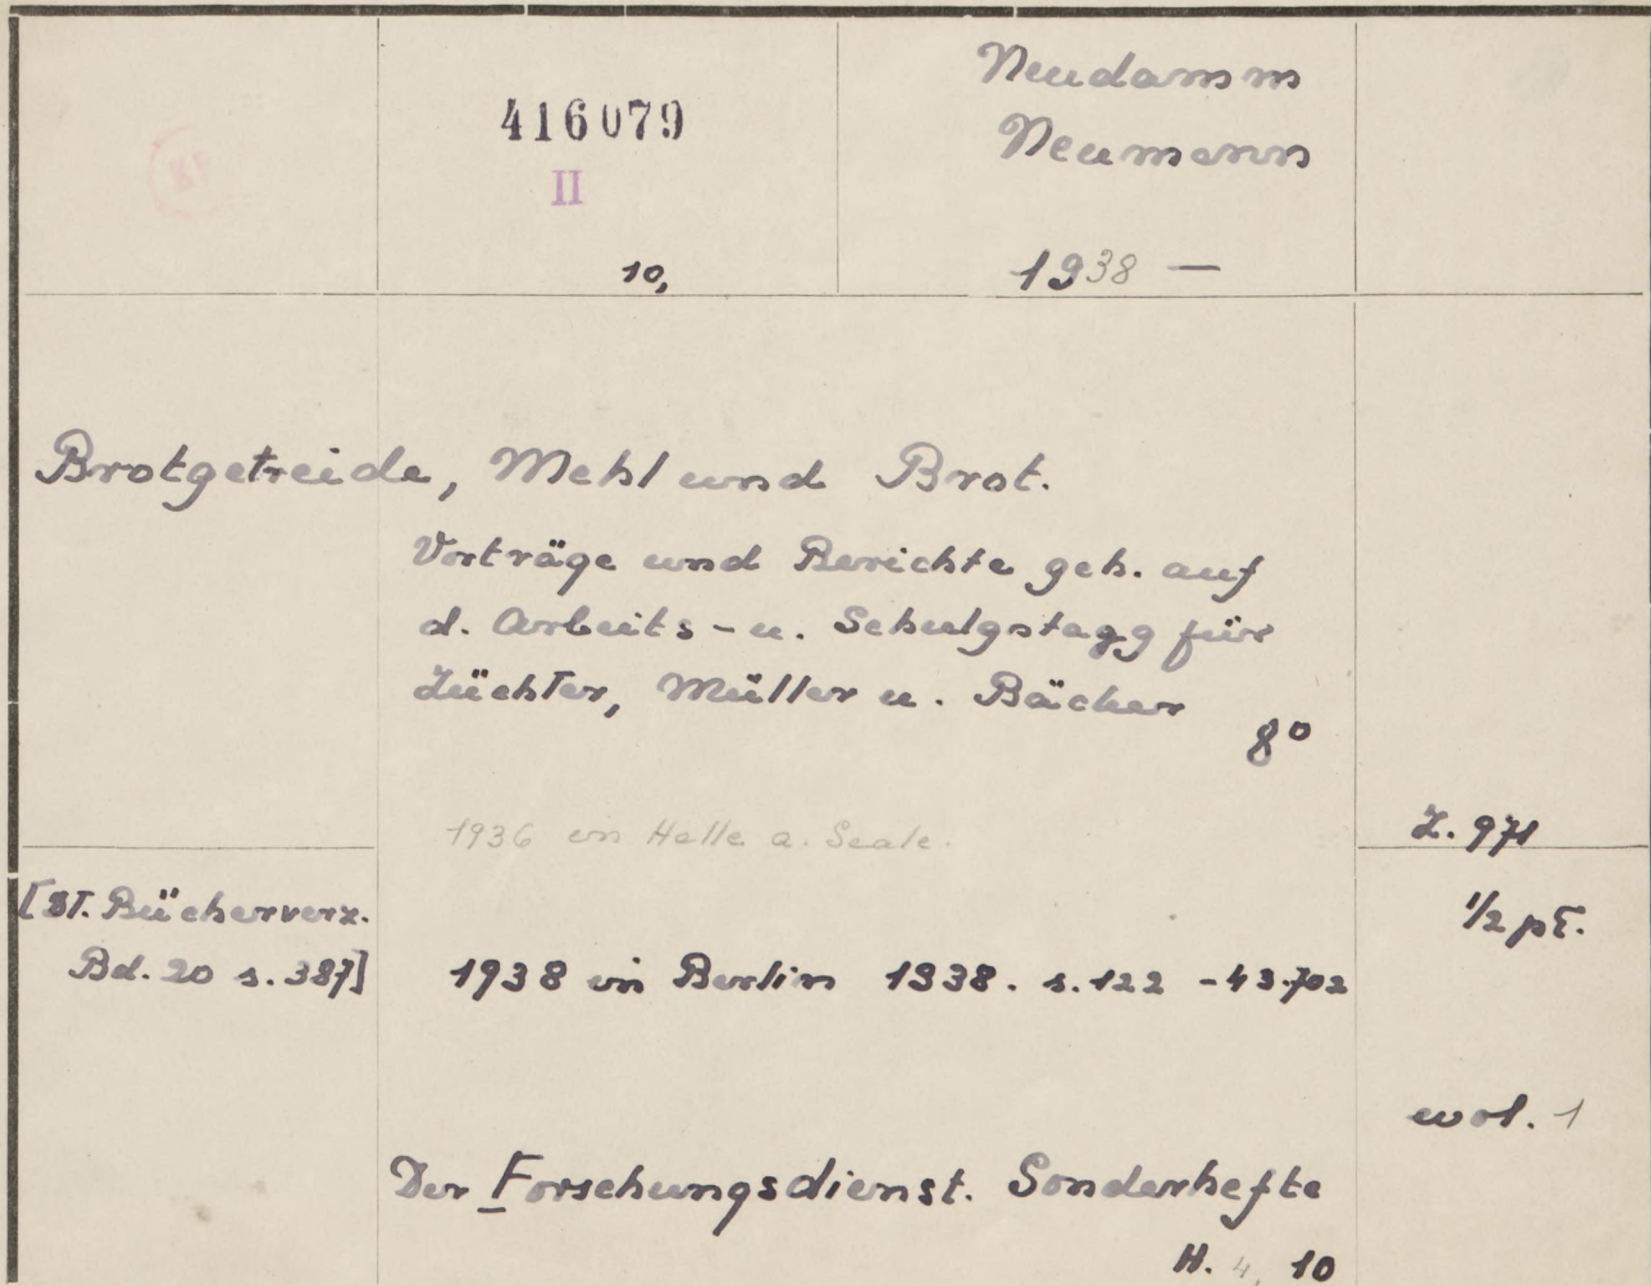 416079
II
10,
Neudamm
Neumann
1938 —
Brotgetreide, Mehl und Brot.
Vorträge und Berichte geh. auf
d. Arbeits- u. Schulgstagg für
Züchter, Müller u. Bäcker
8°
1936 in Halle a. Saale.
Z. 971
[DT. Bücherverz.
Bd. 20 s. 387]
1/2 pł.
1938 in Berlin 1938. s. 122 -43.702
wol. 1
Der Forschungsdienst. Sonderhefte
H. 4, 10